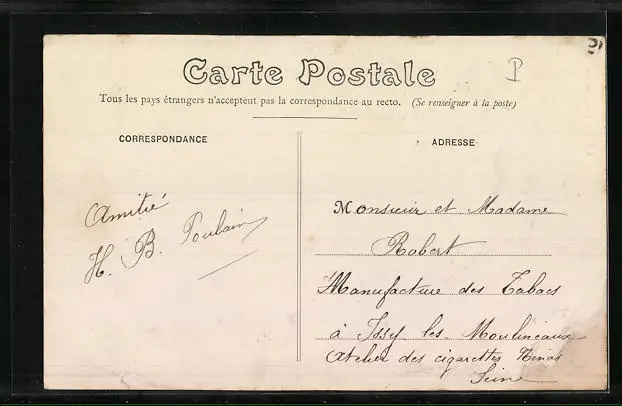 Carte Postale
Tous les pays étrangers n'acceptent pas la correspondance au recto. (Se renseigner à la poste)
CORRESPONDANCE
ADRESSE
Amitié
H. B. Poulain
Monsieur et Madame
Robert
Manufacture des Tabacs
à Issy les Moulineaux
Atelier des cigarettes Ninas
Seine
P